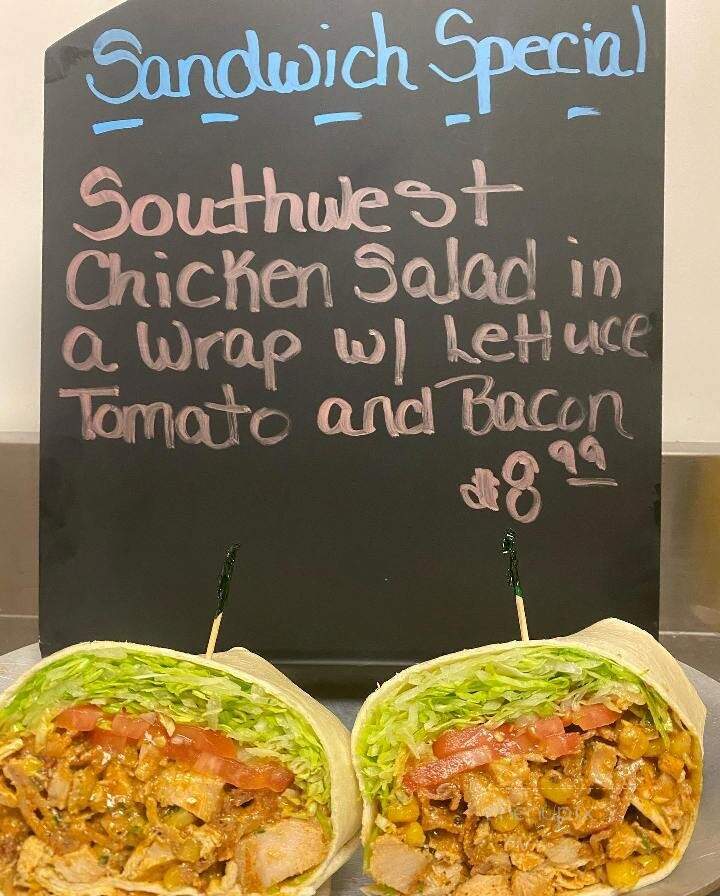 Sandwich Special
Southwest
Chicken Salad in
a Wrap w/ Lettuce
Tomato and Bacon
$8.99
menupix